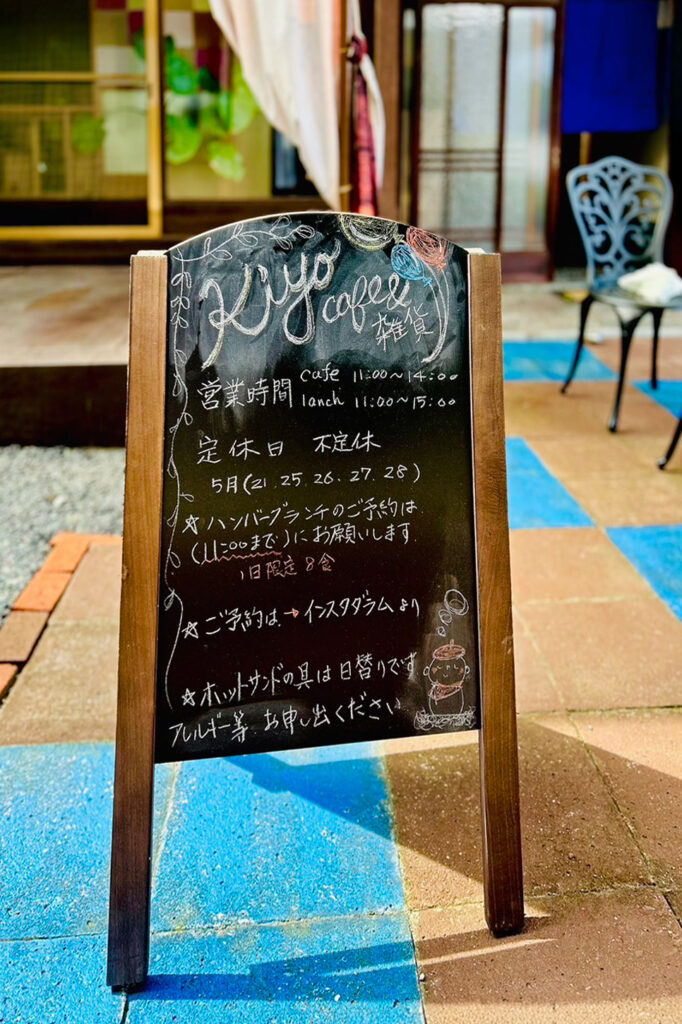 Kiyo
cafe &
雑貨
営業時間 cafe 11:00〜14:00
lanch 11:00〜15:00
定休日 不定休
5月(21.25.26.27.28)
☆ハンバーグランチのご予約は
(11:00まで)にお願いします
1日限定8食
☆ご予約は→インスタグラムより
☆ホットサンドの具は日替りです
アレルギー等、お申し出ください